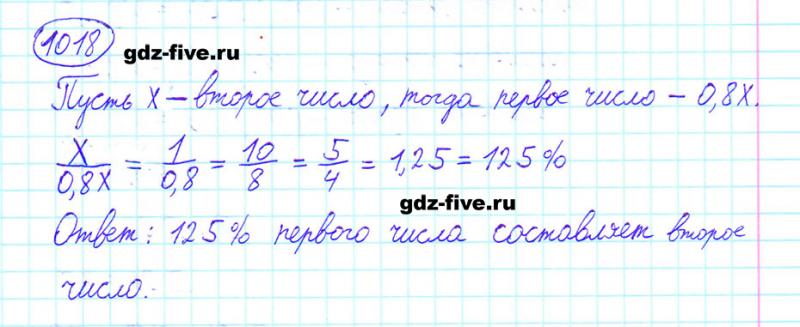 1018
gdz-five.ru
Пусть x – второе число, тогда первое число – 0,8x.
x/0,8x = 1/0,8 = 10/8 = 5/4 = 1,25 = 125%
gdz-five.ru
Ответ: 125% первого числа составляет второе
число.